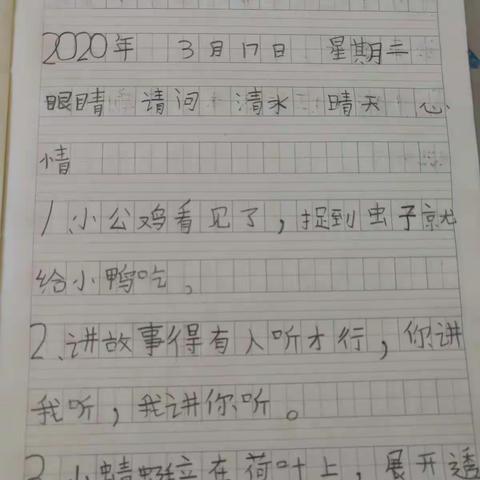 2020年 3月17日 星期二
眼睛 请问 清水 晴天 心
情
1、小公鸡看见了，捉到虫子就
给小鸭吃。
2、讲故事得有人听才行，你讲
我听，我讲你听。
3、小蜻蜓立在荷叶上，展开透